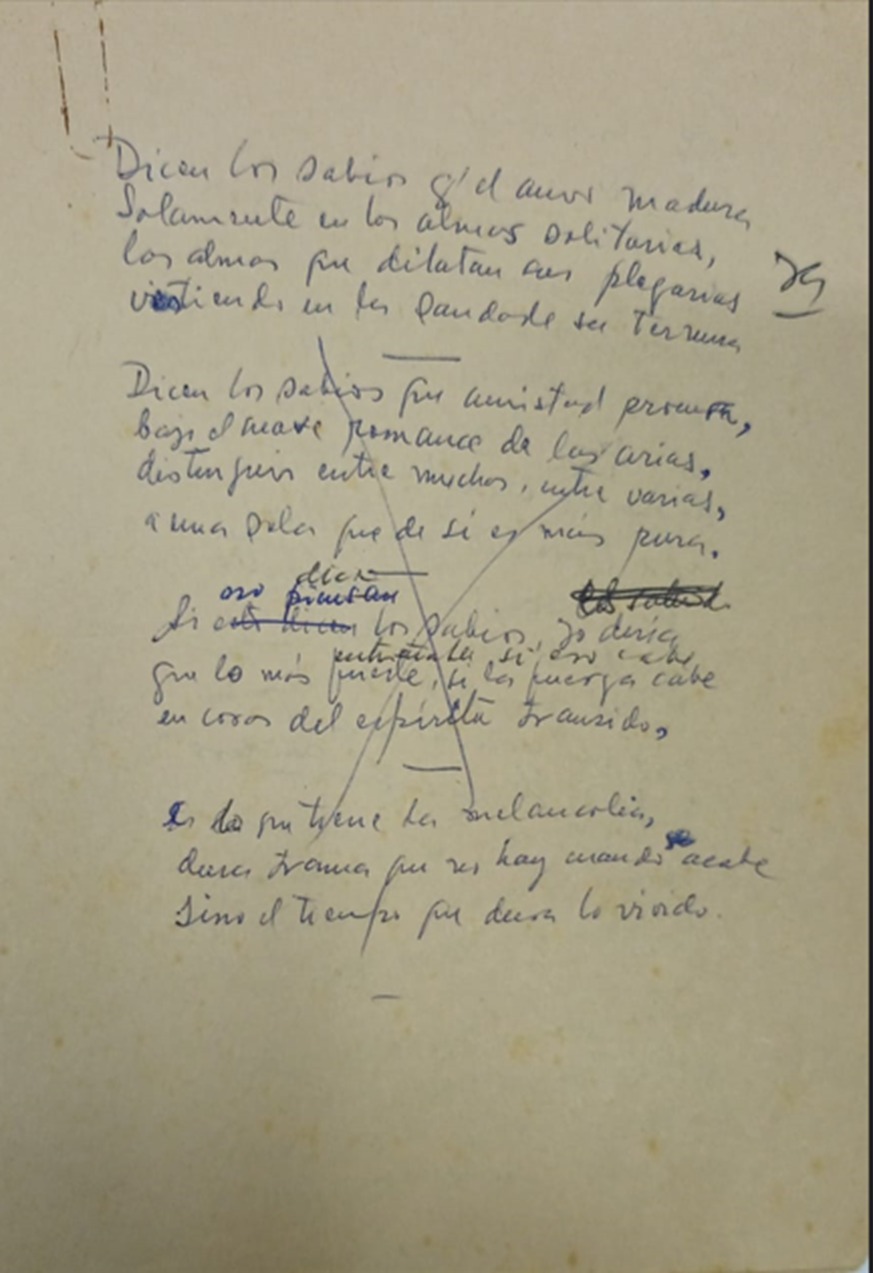 Dicen los sabios q' el amor madura
Solamente en las almas solitarias,
las almas que dilatan sus plegarias
vistiendo en las
Dicen los sabios que amistad procura,
bajo el suave romance de las arias,
distinguir entre muchos, entre varias,
a una sola que de sí es más pura.
dicen
eso piensan
Si esto dicen los sabios, yo diría
entrañable si eso cabe
que lo más fuerte, si la fuerza cabe
en cosas del espíritu transido,
es lo que tiene la melancolía,
dura trama que no hay cuando se acabe
Sino el tiempo que dura lo vivido.